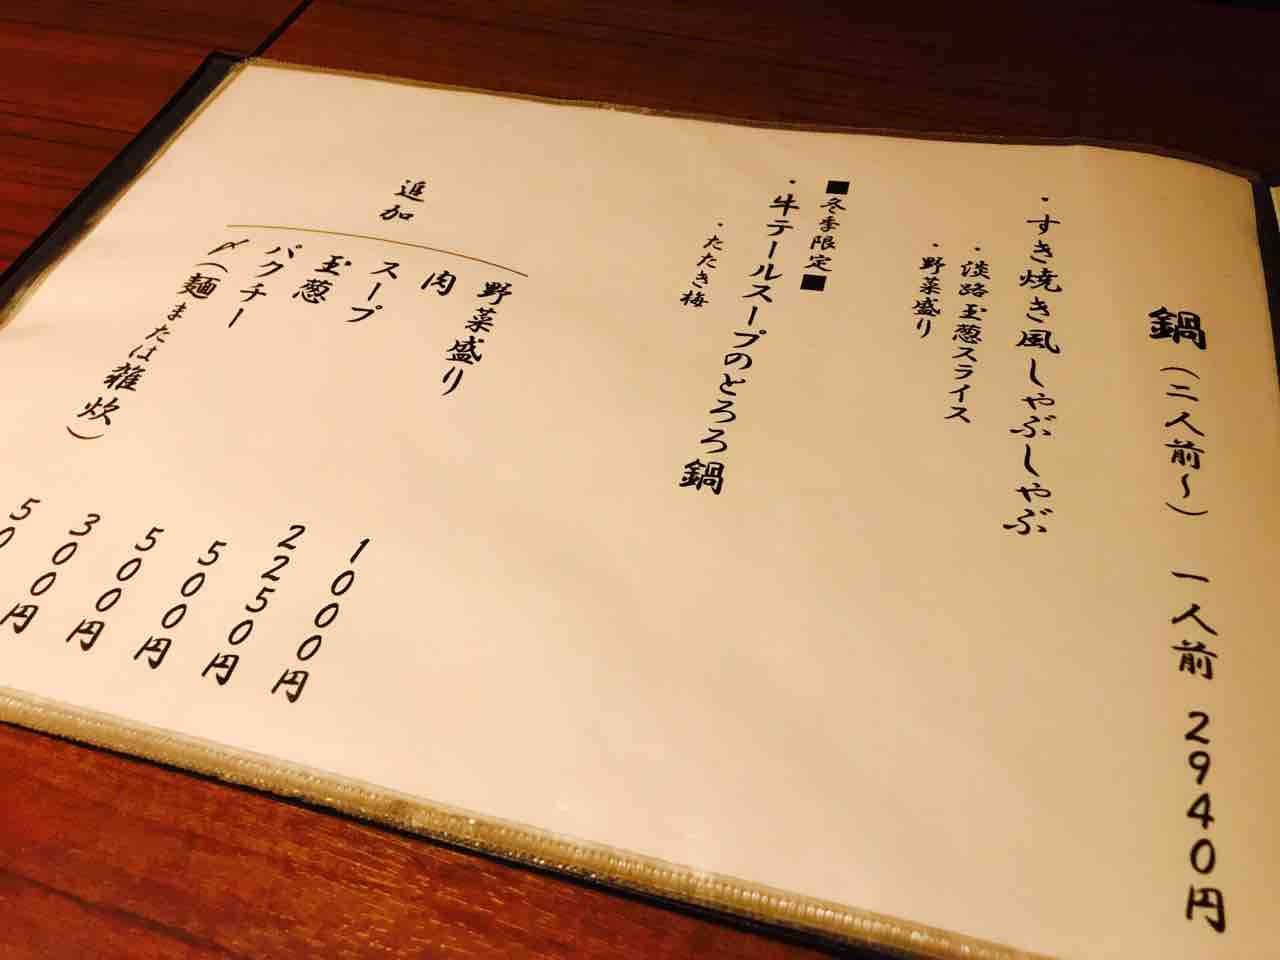 鍋（二人前～）　一人前　2940円
・すき焼き風しゃぶしゃぶ
・淡路玉葱スライス
・野菜盛り
■冬季限定■
・牛テールスープのとろろ鍋
・たたき梅
追加
野菜盛り　1000円
肉　2250円
スープ　500円
玉葱　500円
パクチー　300円
〆（麺または雑炊）　500円